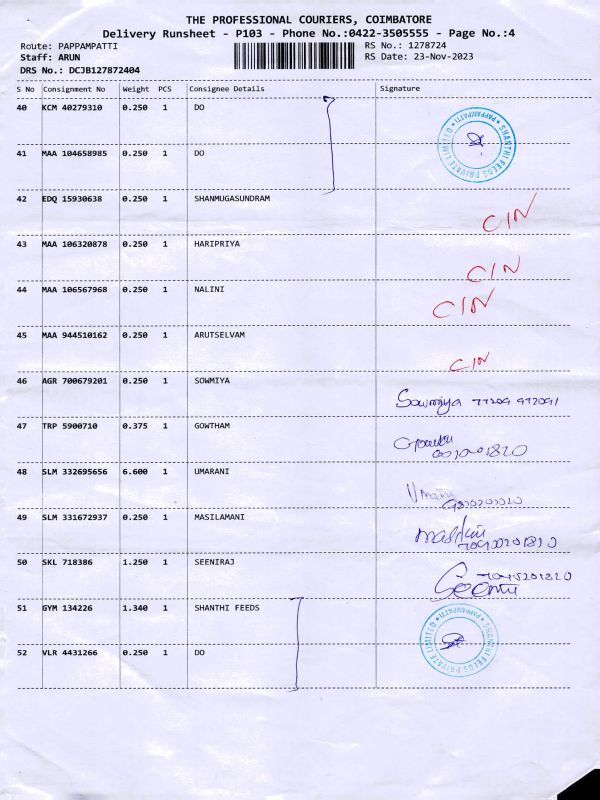 THE PROFESSIONAL COURIERS, COIMBATORE
Delivery Runsheet - P103 - Phone No.:0422-3505555 - Page No.:4
Route: PAPPAMPATTI RS No.: 1278724
Staff: ARUN RS Date: 23-Nov-2023
DRS No.: DCJB127872404
S No Consignment No Weight PCS Consignee Details Signature
40 KCM 40279310 0.250 1 DO
SHANTHI FEEDS PRIVATE LIMITED * PAPPAMPATTI *
41 MAA 104658985 0.250 1 DO
42 EDQ 15930638 0.250 1 SHANMUGASUNDRAM
CIN
43 MAA 106320878 0.250 1 HARIPRIYA
CIN
44 MAA 106567968 0.250 1 NALINI
CIN
45 MAA 944510162 0.250 1 ARUTSELVAM
CIN
46 AGR 700679201 0.250 1 SOWMIYA
Sowmiya
47 TRP 5900710 0.375 1 GOWTHAM
48 SLM 332695656 6.600 1 UMARANI
49 SLM 331672937 0.250 1 MASILAMANI
50 SKL 718386 1.250 1 SEENIRAJ
51 GYM 134226 1.340 1 SHANTHI FEEDS
SHANTHI FEEDS PRIVATE LIMITED * PAPPAMPATTI *
52 VLR 4431266 0.250 1 DO